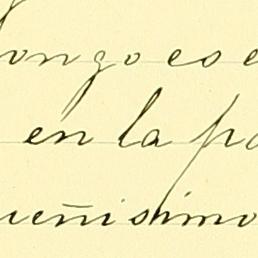 ongo es e
en la pa
ueñisimo